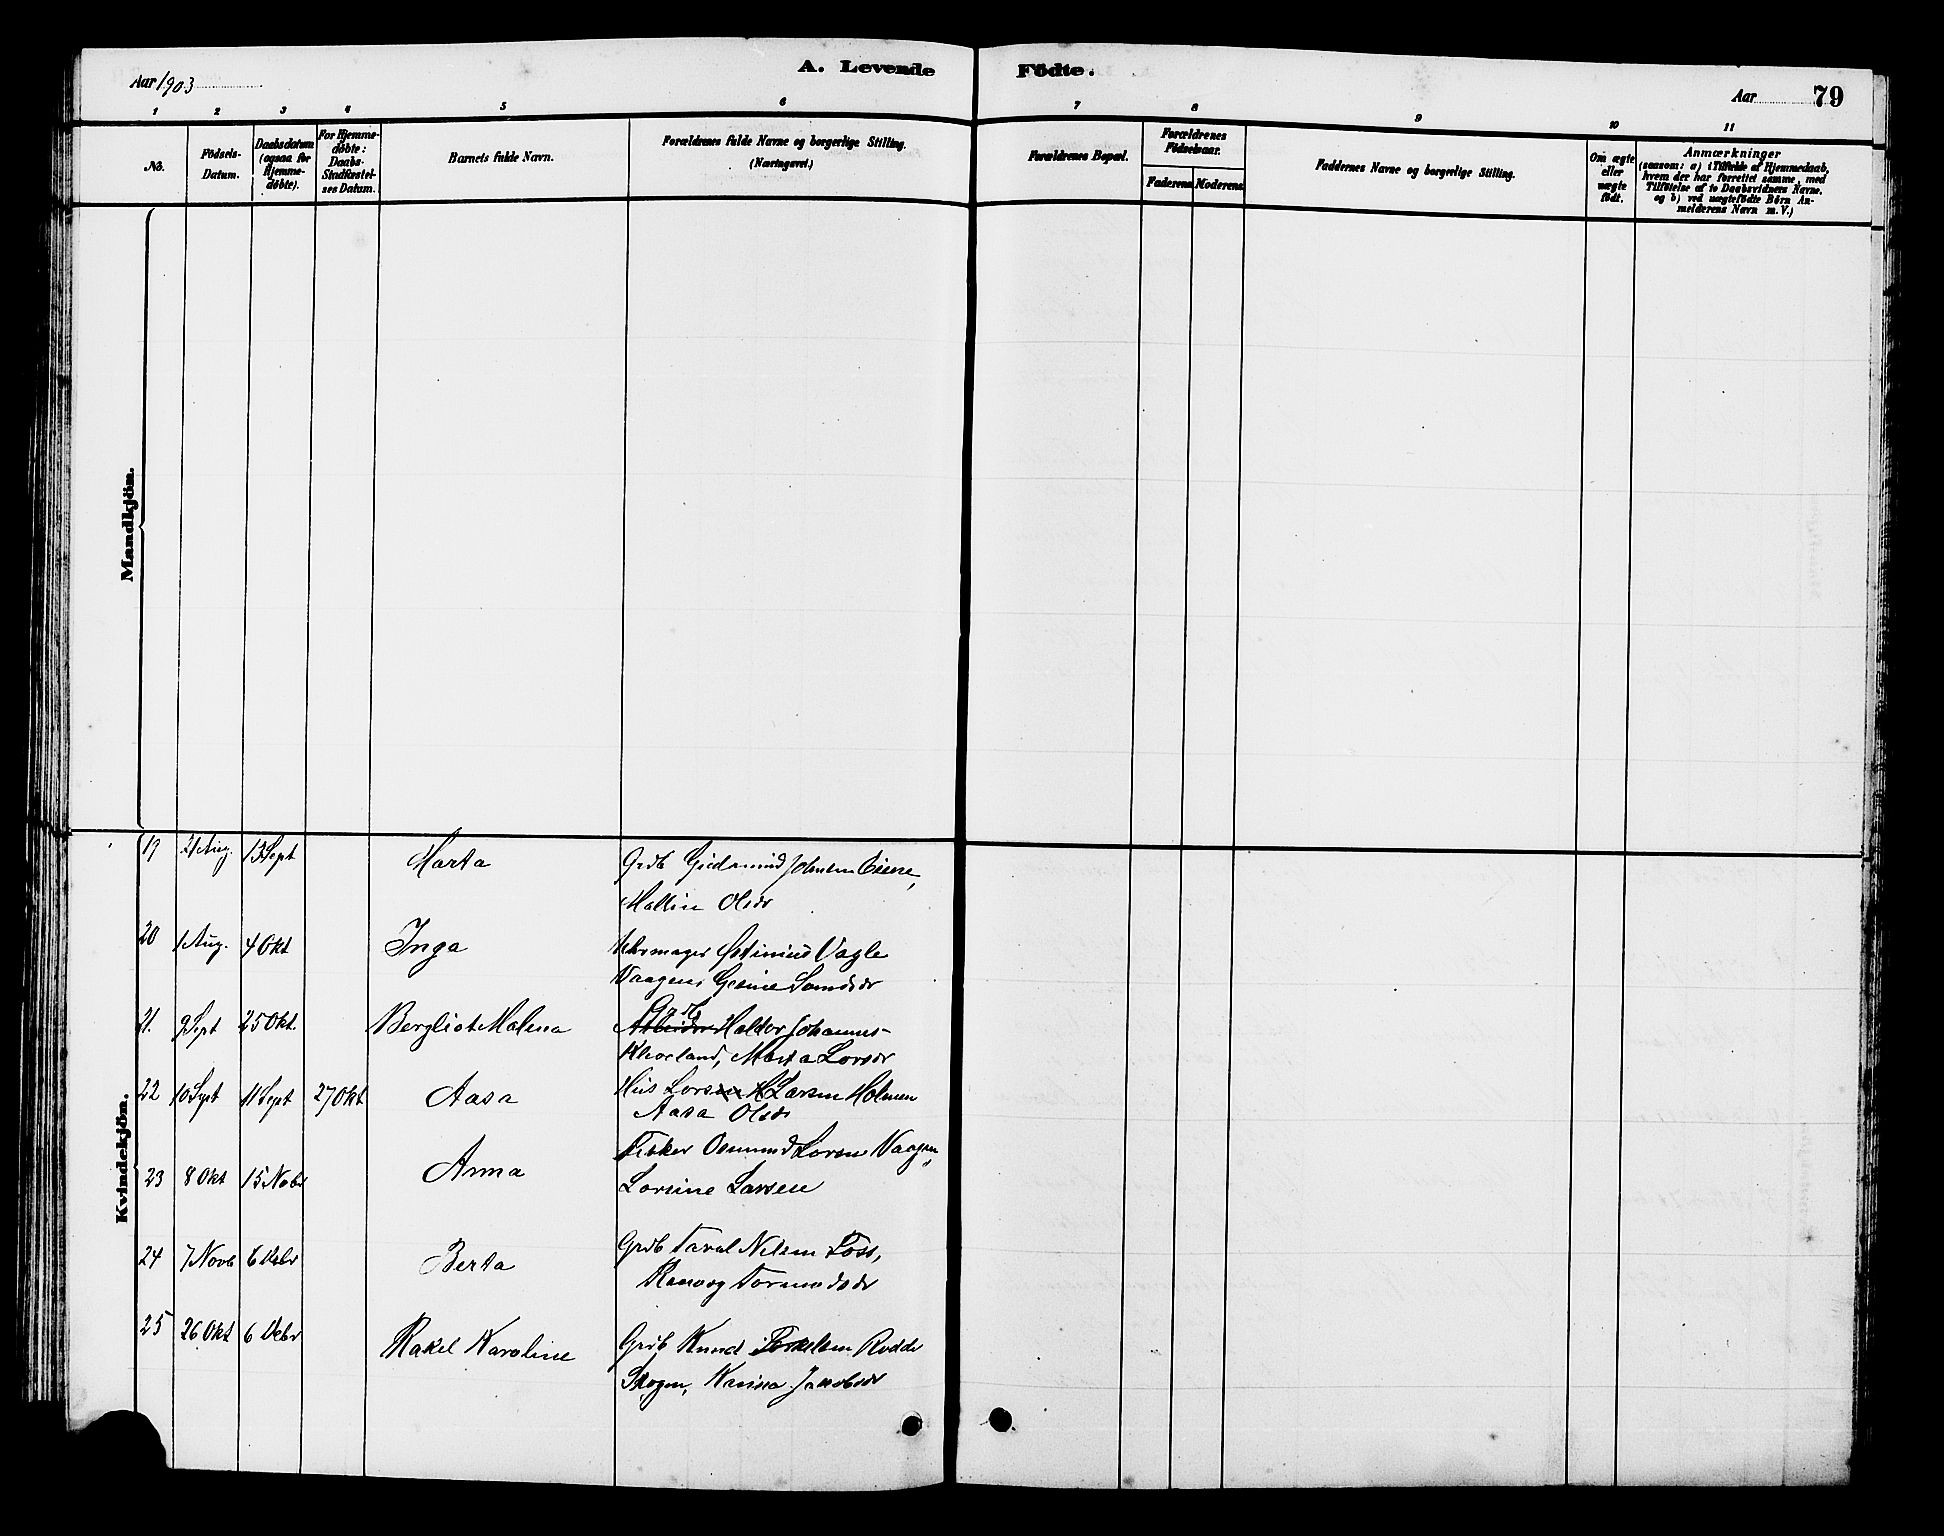 Aar 1903
A. Levende Födte.
Aar 79
1 2 3 4 5 6 7 8 9 10 11
No.
Födsels-
Datum.
Daabsdatum
(ogsaa for
Hjemme-
döbte).
For Hjemme-
döbte:
Daabs-
Stadfæstel-
ses Datum.
Barnets fulde Navn.
Forældrenes fulde Navne og borgerlige Stilling.
(Næringsvei.)
Forældrenes Bopæl.
Forældrenes
Födselsaar.
Faderens Moderens
Faddernes Navne og borgerlige Stilling.
Om ægte
eller
uægte
födt.
Anmærkninger
(saasom: a) i Tilfælde af Hjemmedaab,
hvem der har forrettet samme, med
Tilföielse af to Daabsvidners Navne,
og b) ved uægtefödte Börn An-
melderens Navn m. V.)
Mandkjön.
Kvindekjön.
19 21 Aug. 13 Sept Marta Grdb Gudmund Johnsen
Mallin Olsdr
20 1 Aug. 4 Okt Inga Uhrmager Vagle
Vaagen, Gesine
21. 9 Sept 25 Okt. Bergliot Malena Grdb Arbeider Haldor Johannes-
Marta Larsdr
22 10 Sept 11 Sept 27 Okt Aasa Hus Larsen H Larsen Holmen
Aasa Olsdr
23 8 Okt 15 Nobr Anna Fisker Osmund Larsen Vaagen,
Larsine Larsen
24 7 Novb 6 Debr Berta Grdb Taral Nilsen Foss,
25 26 Okt 6 Debr Rakel Karoline Grdb Knud Torkelsen Rodde
Skogen, Jakobsdr